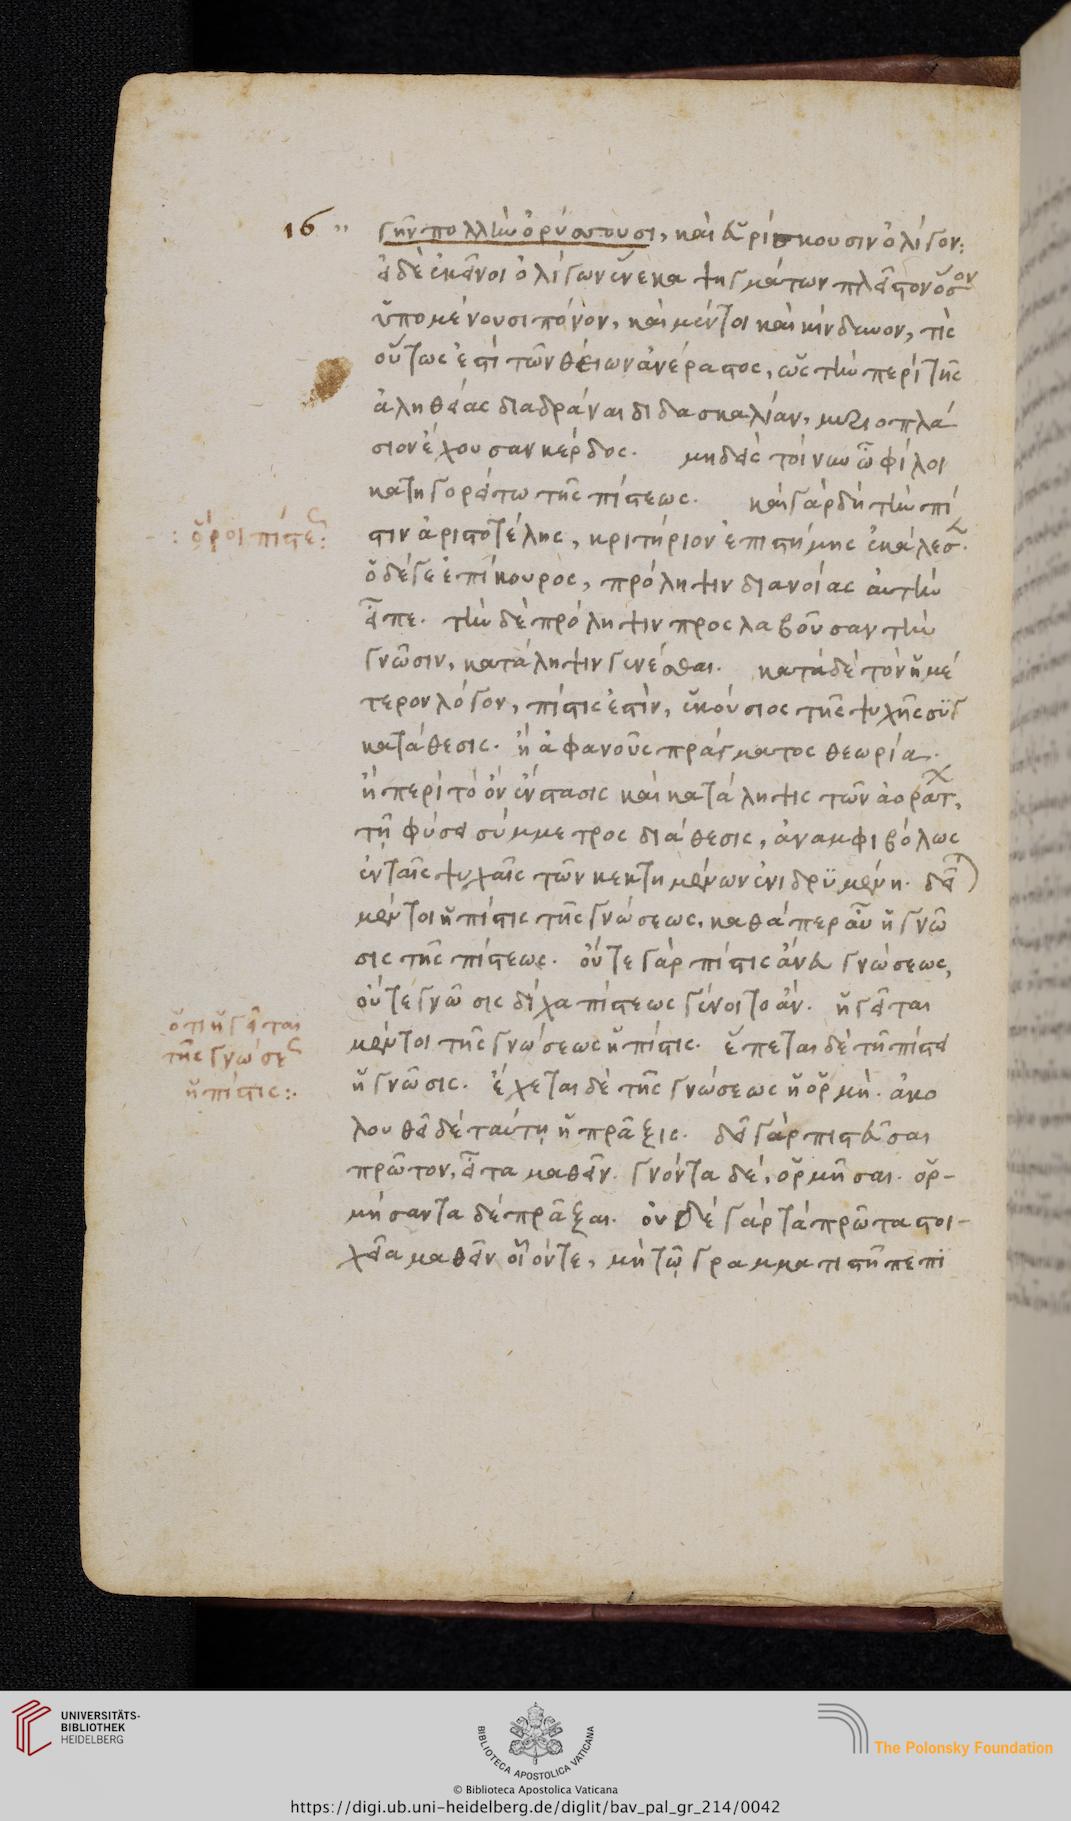 16 "
γῆν πολλὴν ὀρύττουσι, καὶ εὑρίσκουσιν ὀλίγον:
εἰ δὲ ἐκεῖνοι ὀλίγων ἕνεκα ψηγμάτων πλεῖστον ὅσον
ὑπομένουσι πόνον, καὶ μέντοι καὶ κίνδυνον, τίς
οὕτως ἐστὶ τῶν θείων ἀνέραστος, ὡς τὴν περὶ τῆς
ἀληθείας διαδρᾶναι διδασκαλίαν, μυριοπλά
σιον ἔχουσαν κέρδος. μηδεὶς τοίνυν ὦ φίλοι
κατηγορείτω τῆς πίστεως. καὶ γὰρ δὴ τὴν πί
: ὅροι πίστεως:
στιν ἀριστοτέλης, κριτήριον ἐπιστήμης ἐκάλεσ.
ὁ δέ γε ἐπίκουρος, πρόληψιν διανοίας αὐτὴν
εἶπε. τὴν δὲ πρόληψιν προσλαβοῦσαν τὴν
γνῶσιν, κατάληψιν γενέσθαι. κατὰ δὲ τὸν ἡμέ
τερον λόγον, πίστις ἐστὶν, ἑκούσιος τῆς ψυχῆς συγ
κατάθεσις. ἢ ἀφανοῦς πράγματος θεωρία.
ἢ περὶ τὸ ὂν ἔνστασις καὶ κατάληψις τῶν ἀοράτ,
τῇ φύσει σύμμετρος διάθεσις, ἀναμφιβόλως
ἐν ταῖς ψυχαῖς τῶν κεκτημένων ἐνιδρϋμένη. δεῖ
μέντοι ἡ πίστις τῆς γνώσεως, καθάπερ αὖ ἡ γνῶ
σις τῆς πίστεως. οὔτε γὰρ πίστις ἄνευ γνώσεως,
οὔτε γνῶσις δίχα πίστεως γένοιτο ἄν. ἡγεῖται
ὅτι ἡγεῖται
τῆς γνώσεως
ἡ πίστις:.
μέντοι τῆς γνώσεως ἡ πίστις. ἕπεται δὲ τῇ πίστει
ἡ γνῶσις. ἔχεται δὲ τῆς γνώσεως ἡ ὁρμή. ἀκο
λουθεῖ δὲ ταύτῃ ἡ πρᾶξις. δεῖ γὰρ πιστεῦσαι
πρῶτον, εἶτα μαθεῖν. γνόντα δὲ, ὁρμῆσαι. ὁρ-
μήσαντα δὲ πρᾶξαι. οὐδὲ γὰρ τὰ πρῶτα στοι-
χεῖα μαθεῖν οἷόντε, μὴ τῷ γραμματιστῇ πεπι
UNIVERSITÄTS-
BIBLIOTHEK
HEIDELBERG
BIBLIOTECA APOSTOLICA VATICANA
The Polonsky Foundation
© Biblioteca Apostolica Vaticana
https://digi.ub.uni-heidelberg.de/diglit/bav_pal_gr_214/0042